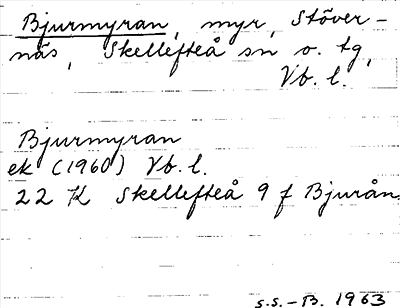 Bjurmyran, myr, Stöver-
näs, Skellefteå sn o. tg,
Vb. l.
Bjurmyran
ek (1960) Vb. l.
22 K Skellefteå 9 f Bjurån
S.S.-B. 1963